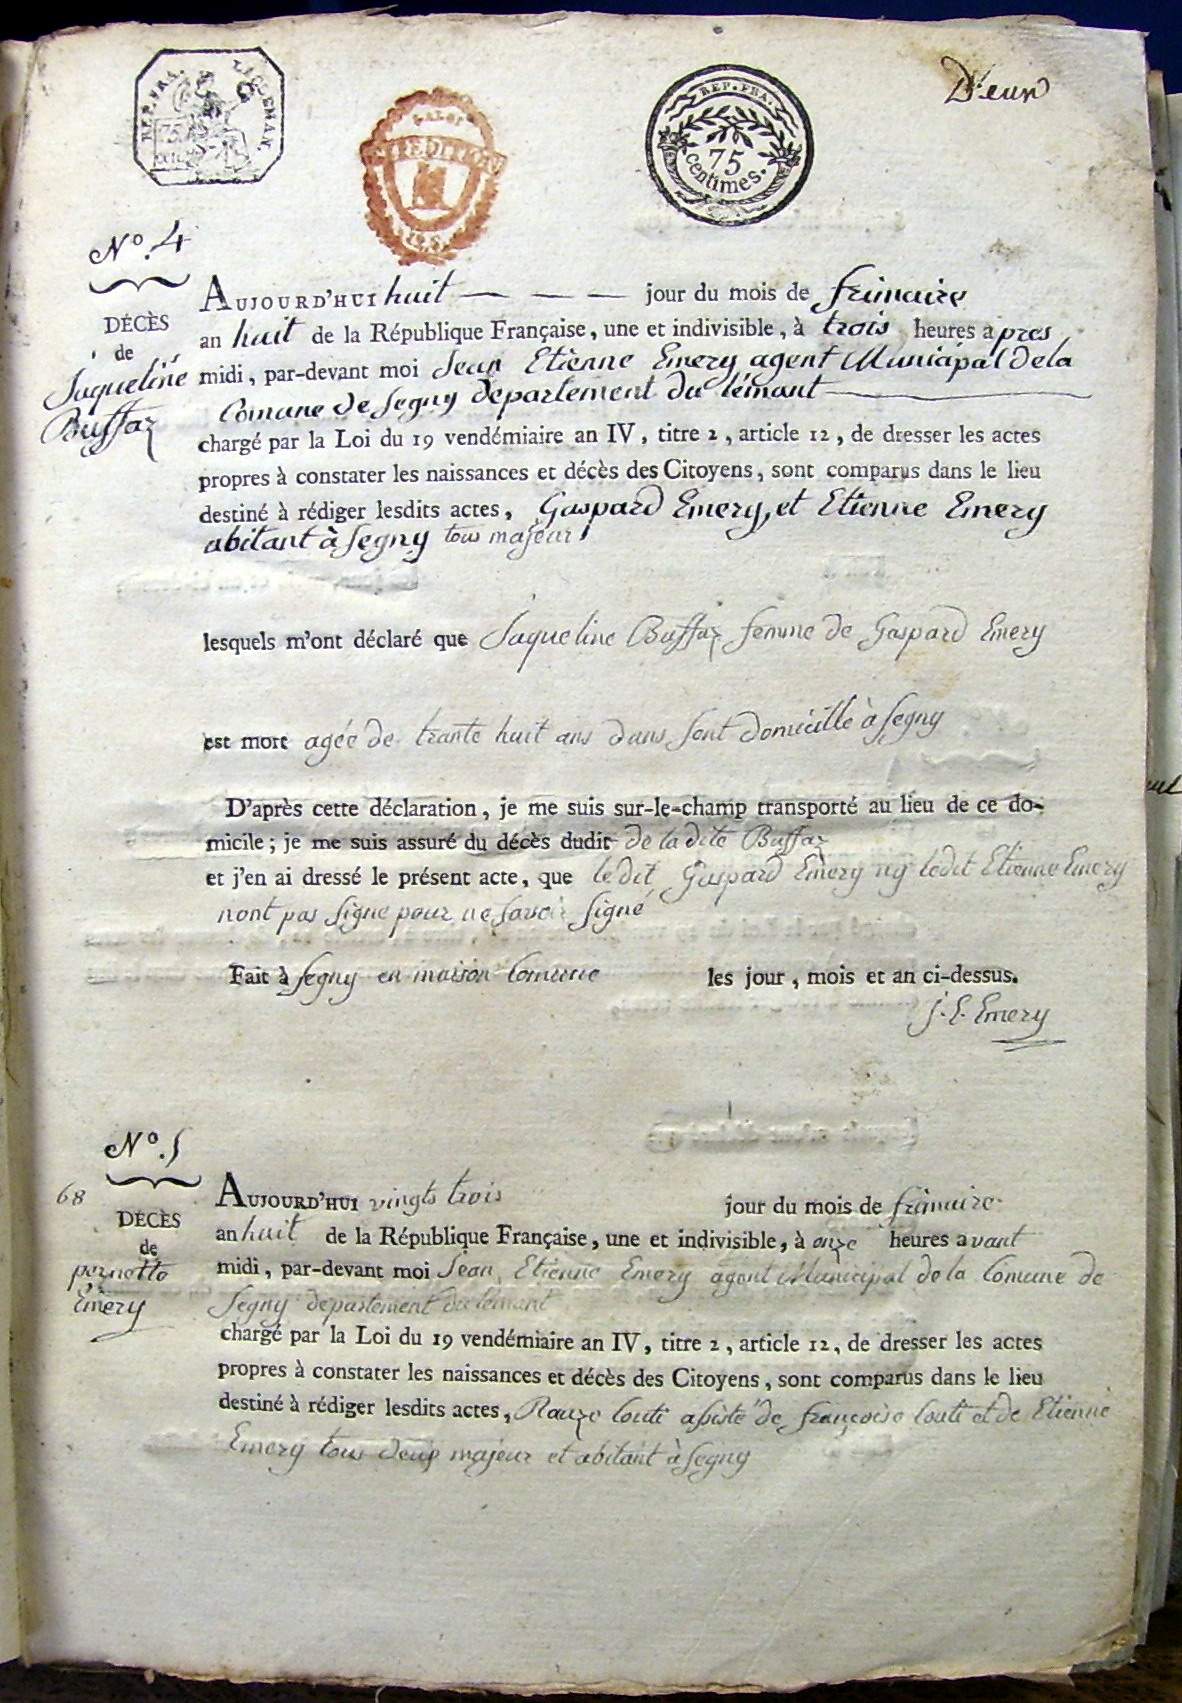 REP. FRA.
75
REP. FRA.
75
centimes.
Deux
N.º 4
DÉCÈS
de
Jaqueline
Buffaz
AUJOURD'HUI huit — — — jour du mois de frimaire
an huit de la République Française, une et indivisible, à trois heures apres
midi, par-devant moi Jean Etienne Emery agent Municipal de la
Comune de Segny departement du lémant
chargé par la Loi du 19 vendémiaire an IV, titre 2, article 12, de dresser les actes
propres à constater les naissances et décès des Citoyens, sont comparus dans le lieu
destiné à rédiger lesdits actes, Gaspard Emery, et Etienne Emery
abitant à Segny tous majeur
lesquels m'ont déclaré que Jaqueline Buffaz femme de Gaspard Emery
est mort agée de trante huit ans dans sont domicille à Segny
D'après cette déclaration, je me suis sur-le-champ transporté au lieu de ce do-
micile; je me suis assuré du décès dudit de la dite Buffaz
et j'en ai dressé le présent acte, que ledit Gaspard Emery ny ledit Etienne Emery
nont pas signe pour ne savoir signé
Fait à Segny en maison Comune les jour, mois et an ci-dessus.
J. E. Emery
N.º 5
68
DÉCÈS
de
pernette
Emery
AUJOURD'HUI vingts trois jour du mois de frimaire
an huit de la République Française, une et indivisible, à onze heures avant
midi, par-devant moi Jean Etienne Emery agent Municipal de la Comune de
Segny departement du lémant
chargé par la Loi du 19 vendémiaire an IV, titre 2, article 12, de dresser les actes
propres à constater les naissances et décès des Citoyens, sont comparus dans le lieu
destiné à rédiger lesdits actes, Rauze Couti asisté de françoise Couti et de Etienne
Emery tous deux majeur et abitant à Segny